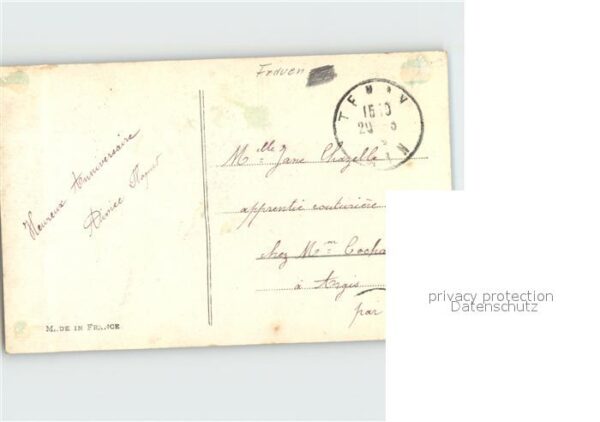 Frauen
TENAY
15 10
20
Heureux Anniversaire
Aimée
Melle Jane Chazelle
apprentie couturière
chez Mme Cocha
à Argis
par
MADE IN FRANCE
privacy protection
Datenschutz